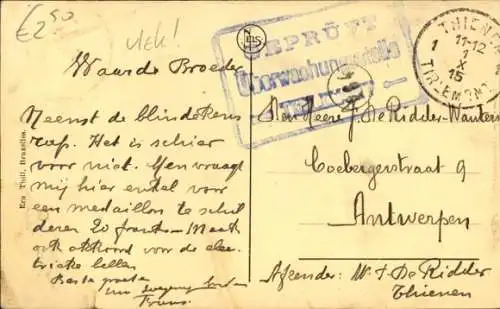 €2,50
Vlek!
GEPRÜFT
Überwachungsstelle
THIENEN
11-12
1 X
15
TIRLEMONT
Waarde Broeder
Neemt de blindekens
rap. Het is schier
voor niet. Men vraagt
mij hier enkel voor
een medaillon te schil
deren 20 frank. Maak
ook akkoord voor de elec-
trieke bellen
Beste groeten
Frans
Ern Thill, Bruxelles.
Den Heere J. De Ridder-Wauters
Coebergerstraat 9
Antwerpen
Afzender: De Ridder
Thienen